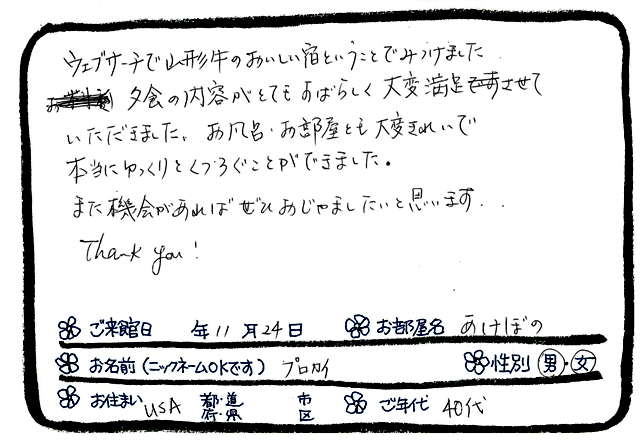 ウェブサーチで山形牛のおいしい宿ということでみつけました
夕食の内容がとてもすばらしく 大変満足させて
いただきました。お風呂・お部屋とも大変きれいで
本当にゆっくりとくつろぐことができました。
また機会があれば ぜひおじゃましたいと思います..
Thank you!
ご来館日 年 11 月 24 日 お部屋名 あけぼの
お名前(ニックネームOKです) 性別 男・女
お住まい USA 都・道 府・県 市 区 ご年代 40代